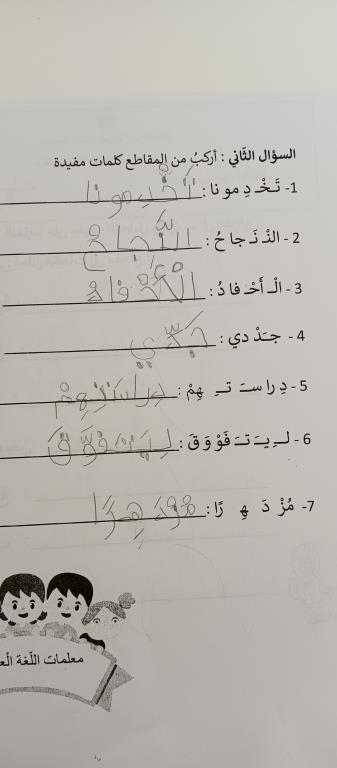 السؤال الثّاني : أركبُ من المقاطع كلمات مفيدة
1- تَـخْـدِ مو نا :
2 - النْـ نَـجا حُ : النَّجاحُ
3 - الْـ أَحْـفا دُ : الْأَحْفادُ
4 - جـَدْ دي : جَدّي
5 - دِرا سـَ تـِ هِمْ : دِراسَتِهِمْ
6 - لـِيَـتَـفَوْ وَقَ : لِيَتَفَوَّقَ
7- مُزْ دَ هِ رًا : مُزْدَهِرًا
معلمات اللّغة